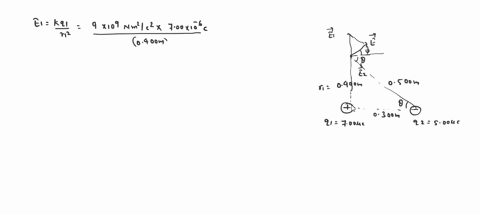 E⃗1 = kq1/r² = 9 x 10⁹ Nm²/c² x 7.00x10⁻⁶c
(0.400m)
E⃗1
E⃗
φ
θ
E⃗2
r1 = 0.400m
0.500m
θ
+
0.300m
−
q1 = 7.00uc
q2 = 5.00uc